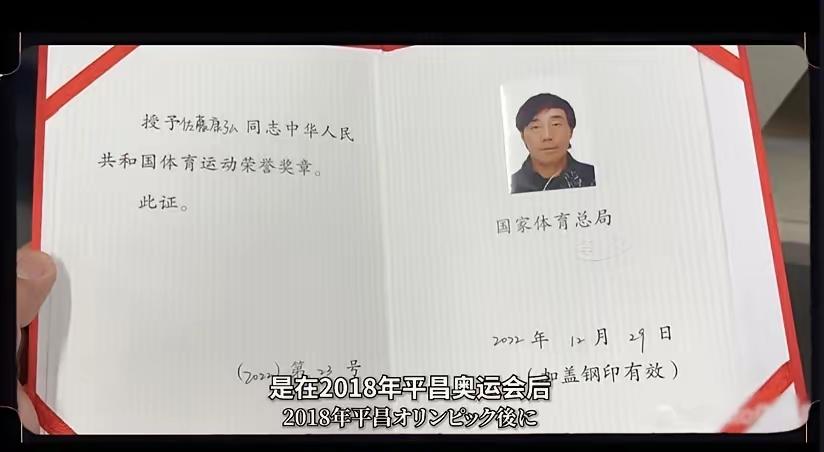 授予佐藤康弘同志中华人民
共和国体育运动荣誉奖章。
此证。
(2022) 第 23 号
国家体育总局
2022 年 12 月 29 日
加盖钢印有效)
是在2018年平昌奥运会后
2018年平昌オリンピック後に